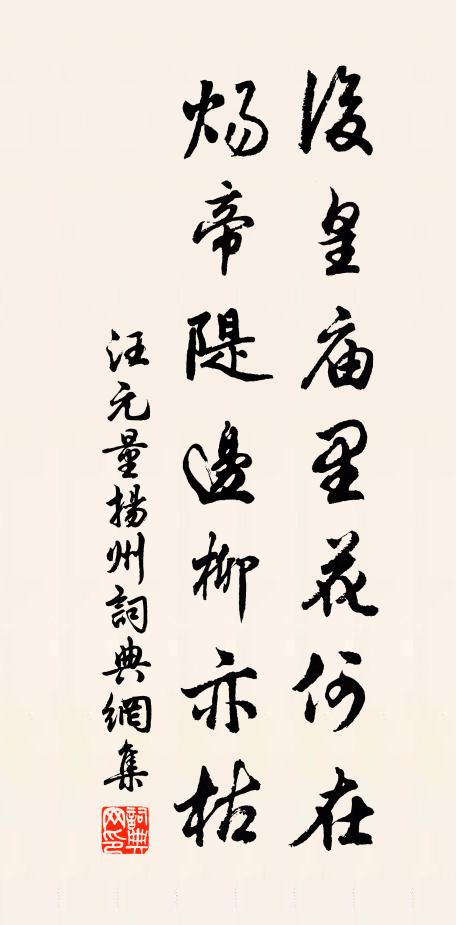 後皇庙里花何在
炀帝隄邊柳亦枯
汪元量揚州詞典網集
詞典网印